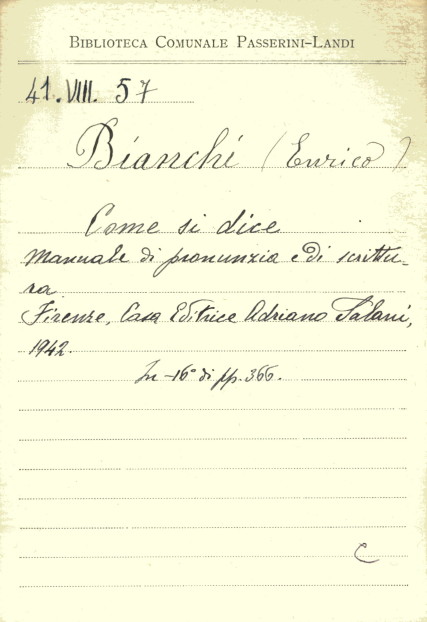 BIBLIOTECA COMUNALE PASSERINI-LANDI
41.VIII.57
Bianchi (Enrico)
Come si dice
Manuale di pronunzia e di scrittu-
ra
Firenze, Casa Editrice Adriano Salani,
1942.
In-16° di pp. 366.
C